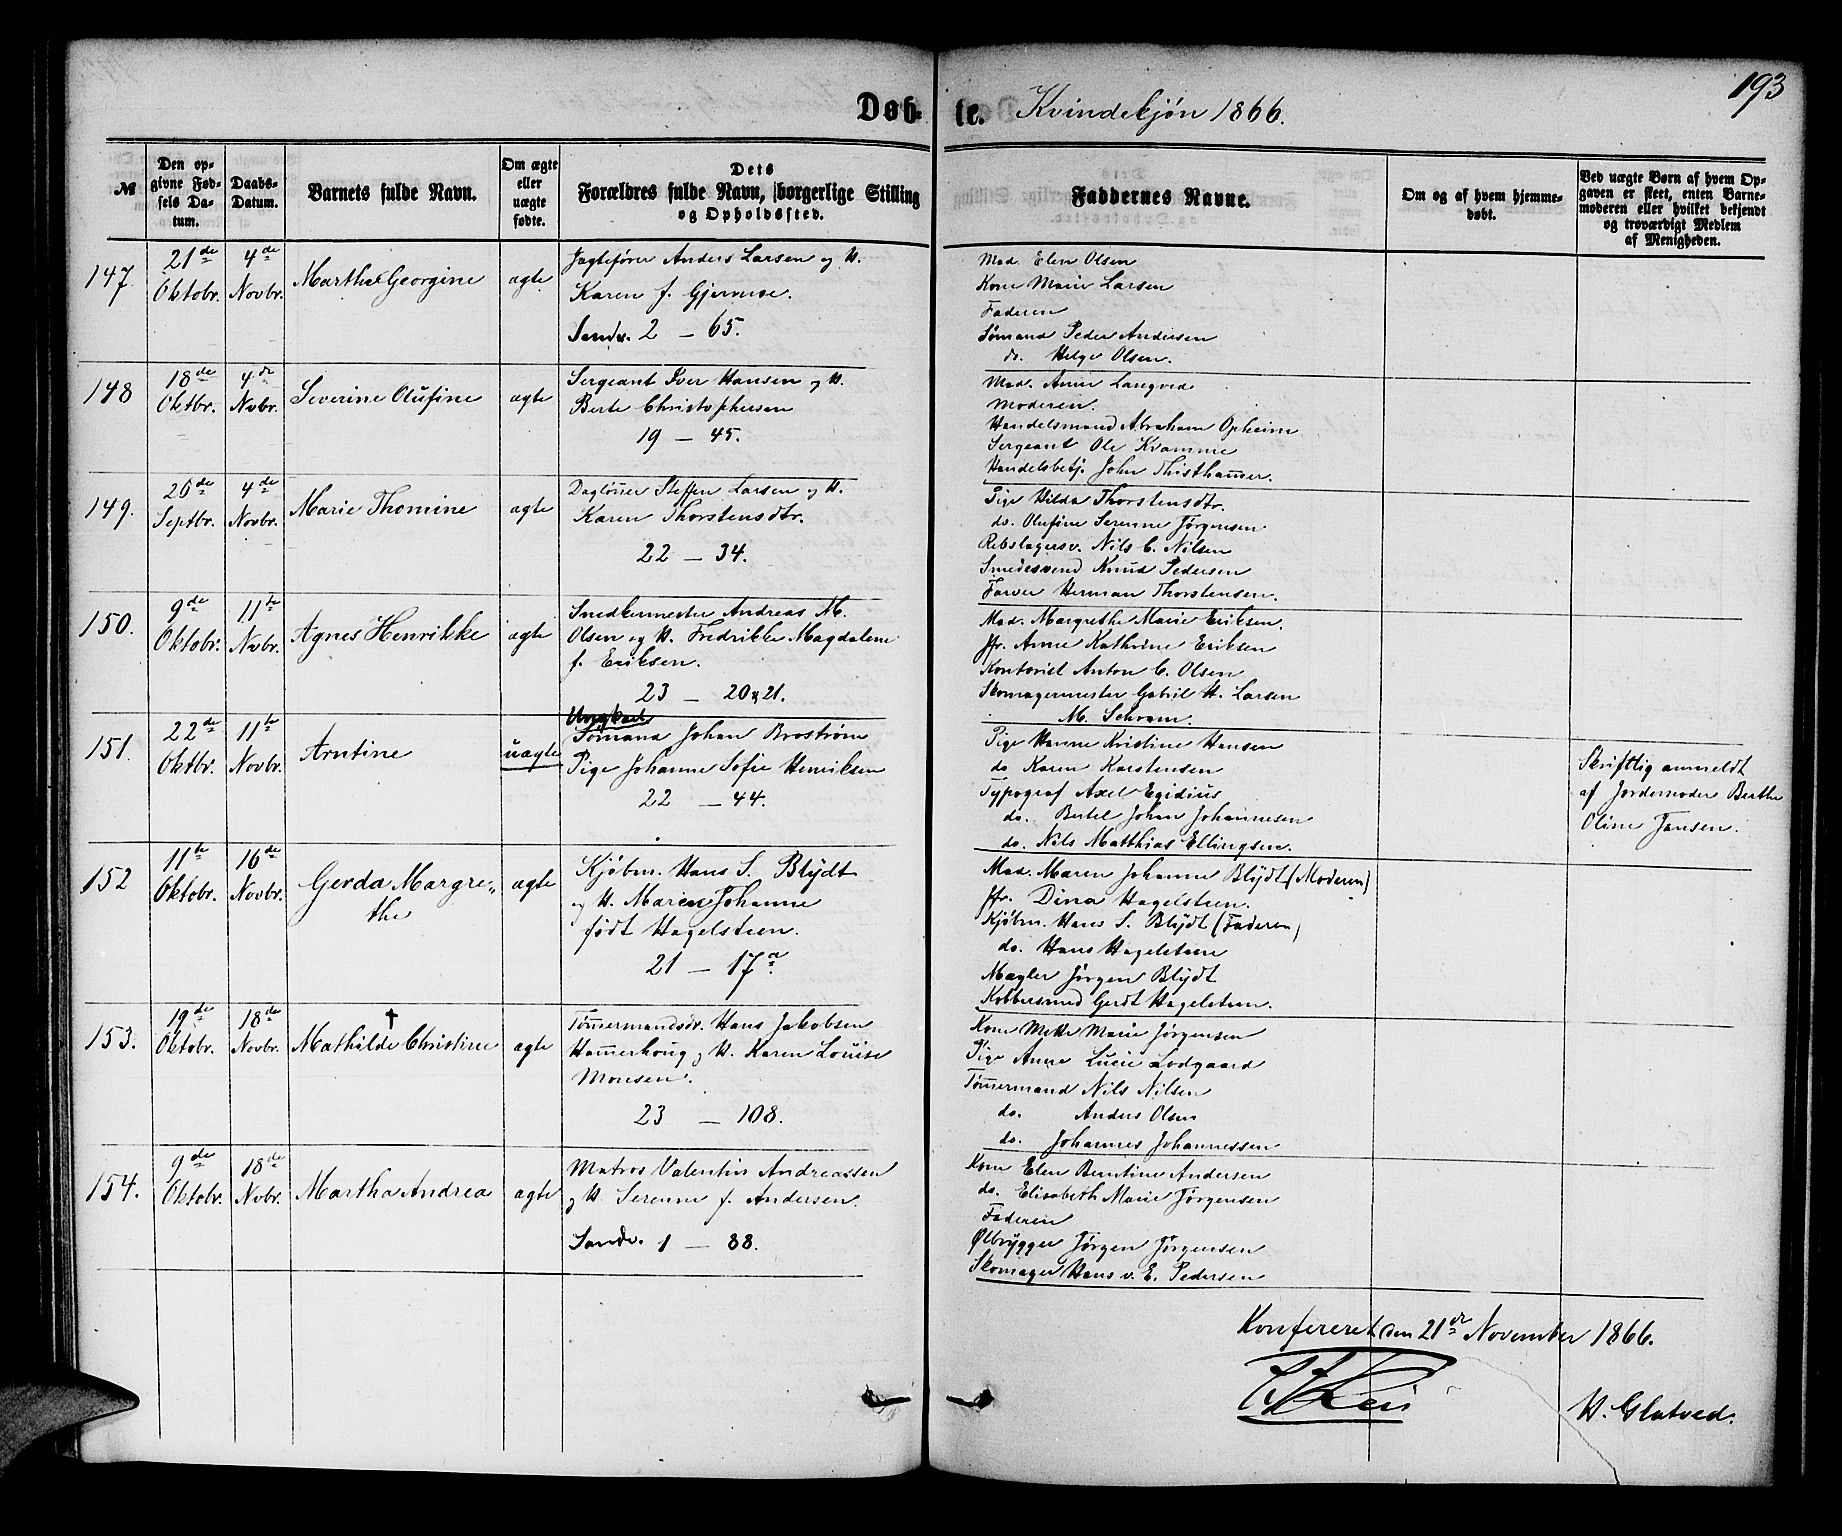 193
Døb-te. Kvindekjøn 1866.
№
Den op-
givne Fød-
sels Da-
tum.
Daabs-
Datum.
Barnets fulde Navn.
Om ægte
eller
uægte
fødte.
Dets
Forældres fulde Navn, borgerlige Stilling
og Opholdssted.
Faddernes Navne.
Om og af hvem hjemme-
døbt.
Ved uægte Børn af hvem Op-
gaven er skeet, enten Barne-
moderen eller hvilket bekjendt
og troværdigt Medlem
af Menigheden.
147.
21de
Oktobr.
4de
Novbr.
Martha Georgine
ægte
Jagtefører Anders Larsen og H.
Karen f. Gjermoe.
Sandv. 2 – 65.
Mad. Elen Olsen
Kone Marie Larsen
Faderen
Sømand Peder Andersen
do. Helge Olsen.
148
18de
Oktbr.
4de
Nvbr.
Severine Olufine
ægte
Sergeant Iver Hansen og H.
Berte Christophersen
19 – 45.
Mad. Anne Langved
Moderen.
Handelsmand Abraham Opheim
Sergeant Ole Kvamme
Handelsbetj. John Thisthammer.
149.
20de
Septbr.
4de
Novbr.
Marie Thomine
ægte
Dagløner Steffen Larsen og H.
Karen Thorstensdtr.
22 – 34.
Pige Hilda Thorstensdtr.
do. Olufine Serenne Jørgensen
Rebslagersv. Nils C. Nilsen
Smedesvend Knud Pedersen
Farver Herman Thorstensen.
150.
9de
Oktobr.
11te
Nvbr.
Agnes Henrikke
ægte
Snedkermester Andreas M.
Olsen og H. Fredrikke Magdalene
f. Eriksen.
23 – 20 & 21.
Mad. Margrethe Marie Eriksen.
Jfr. Anne Kathrine Eriksen
Kontorist Anton C. Olsen
Skomagermester Gabriel H. Larsen
M. Schram.
151.
22de
Oktbr.
11te
Novbr.
Arntine
uægte
Ungkarl
Sømand Johan Brostrøm
Pige Johanne Sofie Henriksen
22 – 44.
Pige Hanne Kristine Hansen
do Karen Karstensen
Typograf Axel Egidius
do. Bertel Johan Johannesen
do. Nils Matthias Ellingsen.
Skriftlig anmeldt
af Jordemoder Berthe
Oline Jansen.
152
11te
Oktobr.
16de
Novbr.
Gerda Margre-
the
ægte
Kjøbm. Hans S. Blÿdt
og H. Maren Johanne
født Hagelsteen.
21 – 17a
Mad. Maren Johanne Blÿdt (Moderen)
Jfr. Dina Hagelsteen.
Kjøbm. Hans S. Blÿdt (Faderen)
do. Hans Hagelsteen
Mægler Jørgen Blÿdt
Kobbersmed Gerdt Hagelsteen.
153.
19de
Oktobr.
18de
Novbr.
†
Mathilde Christine
ægte
Tømmermandsdr. Hans Jakobsen
Hammerhoug og H. Karen Louise
Monsen.
23 – 108.
Kone Mette Marie Jørgensen
Pige Anne Lucie Lodgaard
Tømmermand Nils Nilsen
do. Anders Olsen
do. Johannes Johannessen
154.
9de
Oktobr.
18de
Nvbr.
Martha Andrea
ægte
Matros Valentin Andreassen
og H. Serenne f. Andersen.
Sandv. 1 – 88.
Kone Elen Berntine Andersen
do. Elisabeth Marie Jørgensen
Faderen
Ølbrygger Jørgen Jørgensen
Skomager Hans v. E. Pedersen
Konfereret den 21de November 1866.
H. Glatved.